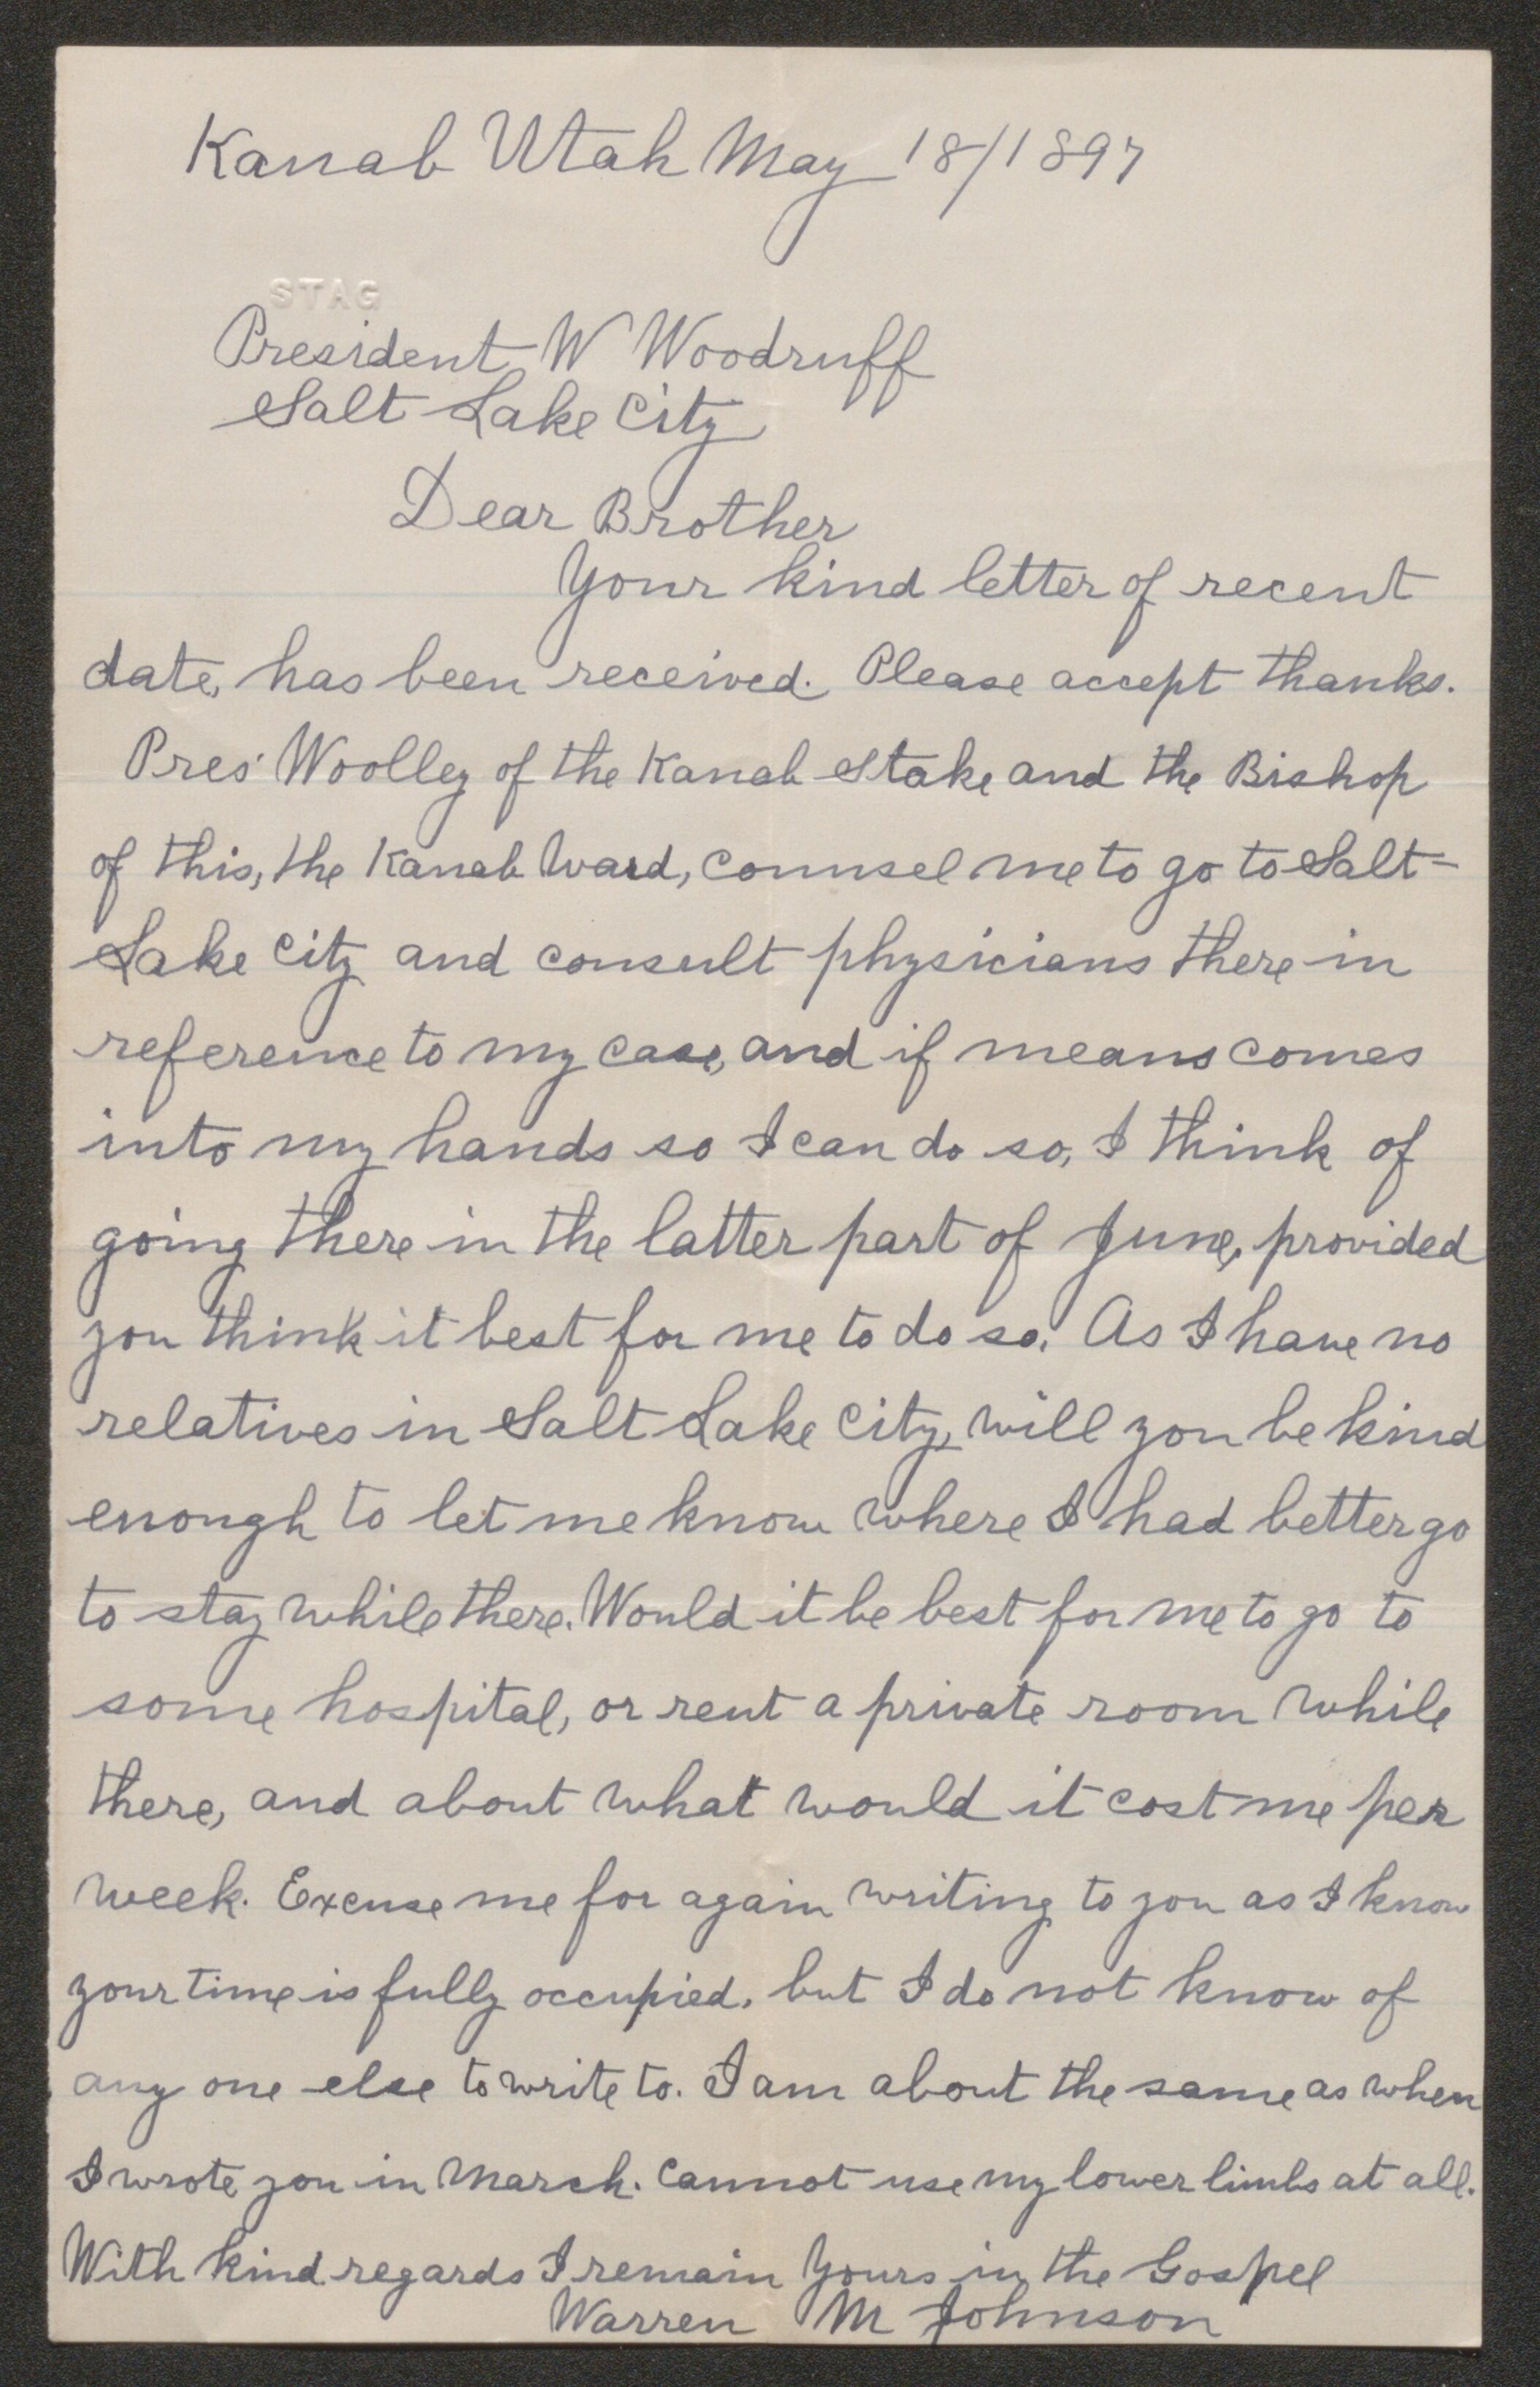 Kanab Utah May 18/1897
STAG
President W Woodruff
Salt Lake City
Dear Brother
Your kind letter of recent
date, has been received. Please accept thanks.
Pres' Woolley of the Kanab Stake and the Bishop
of this, the Kanab Ward, counsel me to go to Salt-
Lake City and consult physicians there in
reference to my case, and if means comes
into my hands so I can do so, I think of
going there in the latter part of June, provided
you think it best for me to do so. As I have no
relatives in Salt Lake City, will you be kind
enough to let me know where I had better go
to stay while there. Would it be best for me to go to
some hospital, or rent a private room while
there, and about what would it cost me per
week. Excuse me for again writing to you as I know
your time is fully occupied, but I do not know of
any one else to write to. I am about the same as when
I wrote you in March. Cannot use my lower limbs at all.
With kind regards I remain Yours in the Gospel
Warren M Johnson